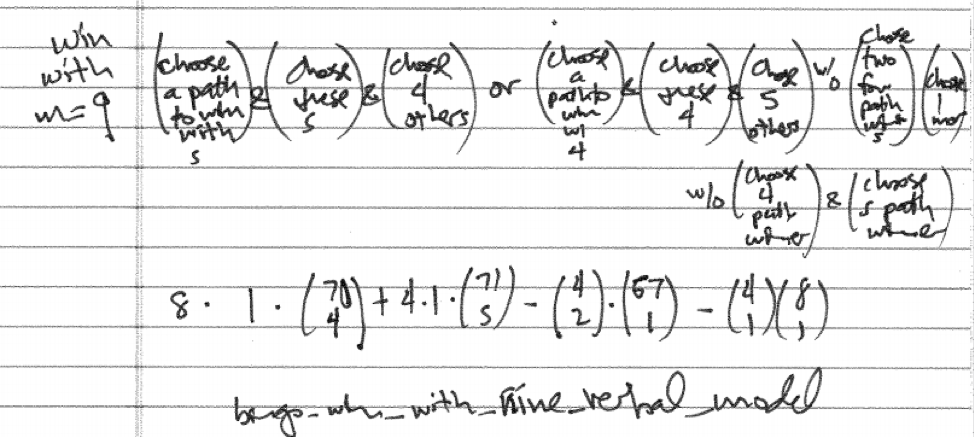 win with m=9 (choose a path to win with 5) & (choose these 5) & (choose 4 others) or (choose a path to win w/ 4) & (choose these 4) & (choose 5 others) w/o (chose two four path w/ 5) (choose 1 mor)
w/o (choose 4 path winner) & (choose 5 path winner)
8 · 1 · (70 4) + 4·1·(71 5) − (4 2)·(67 1) − (4 1)(8 1)
bingo_win_with_nine_verbal_model